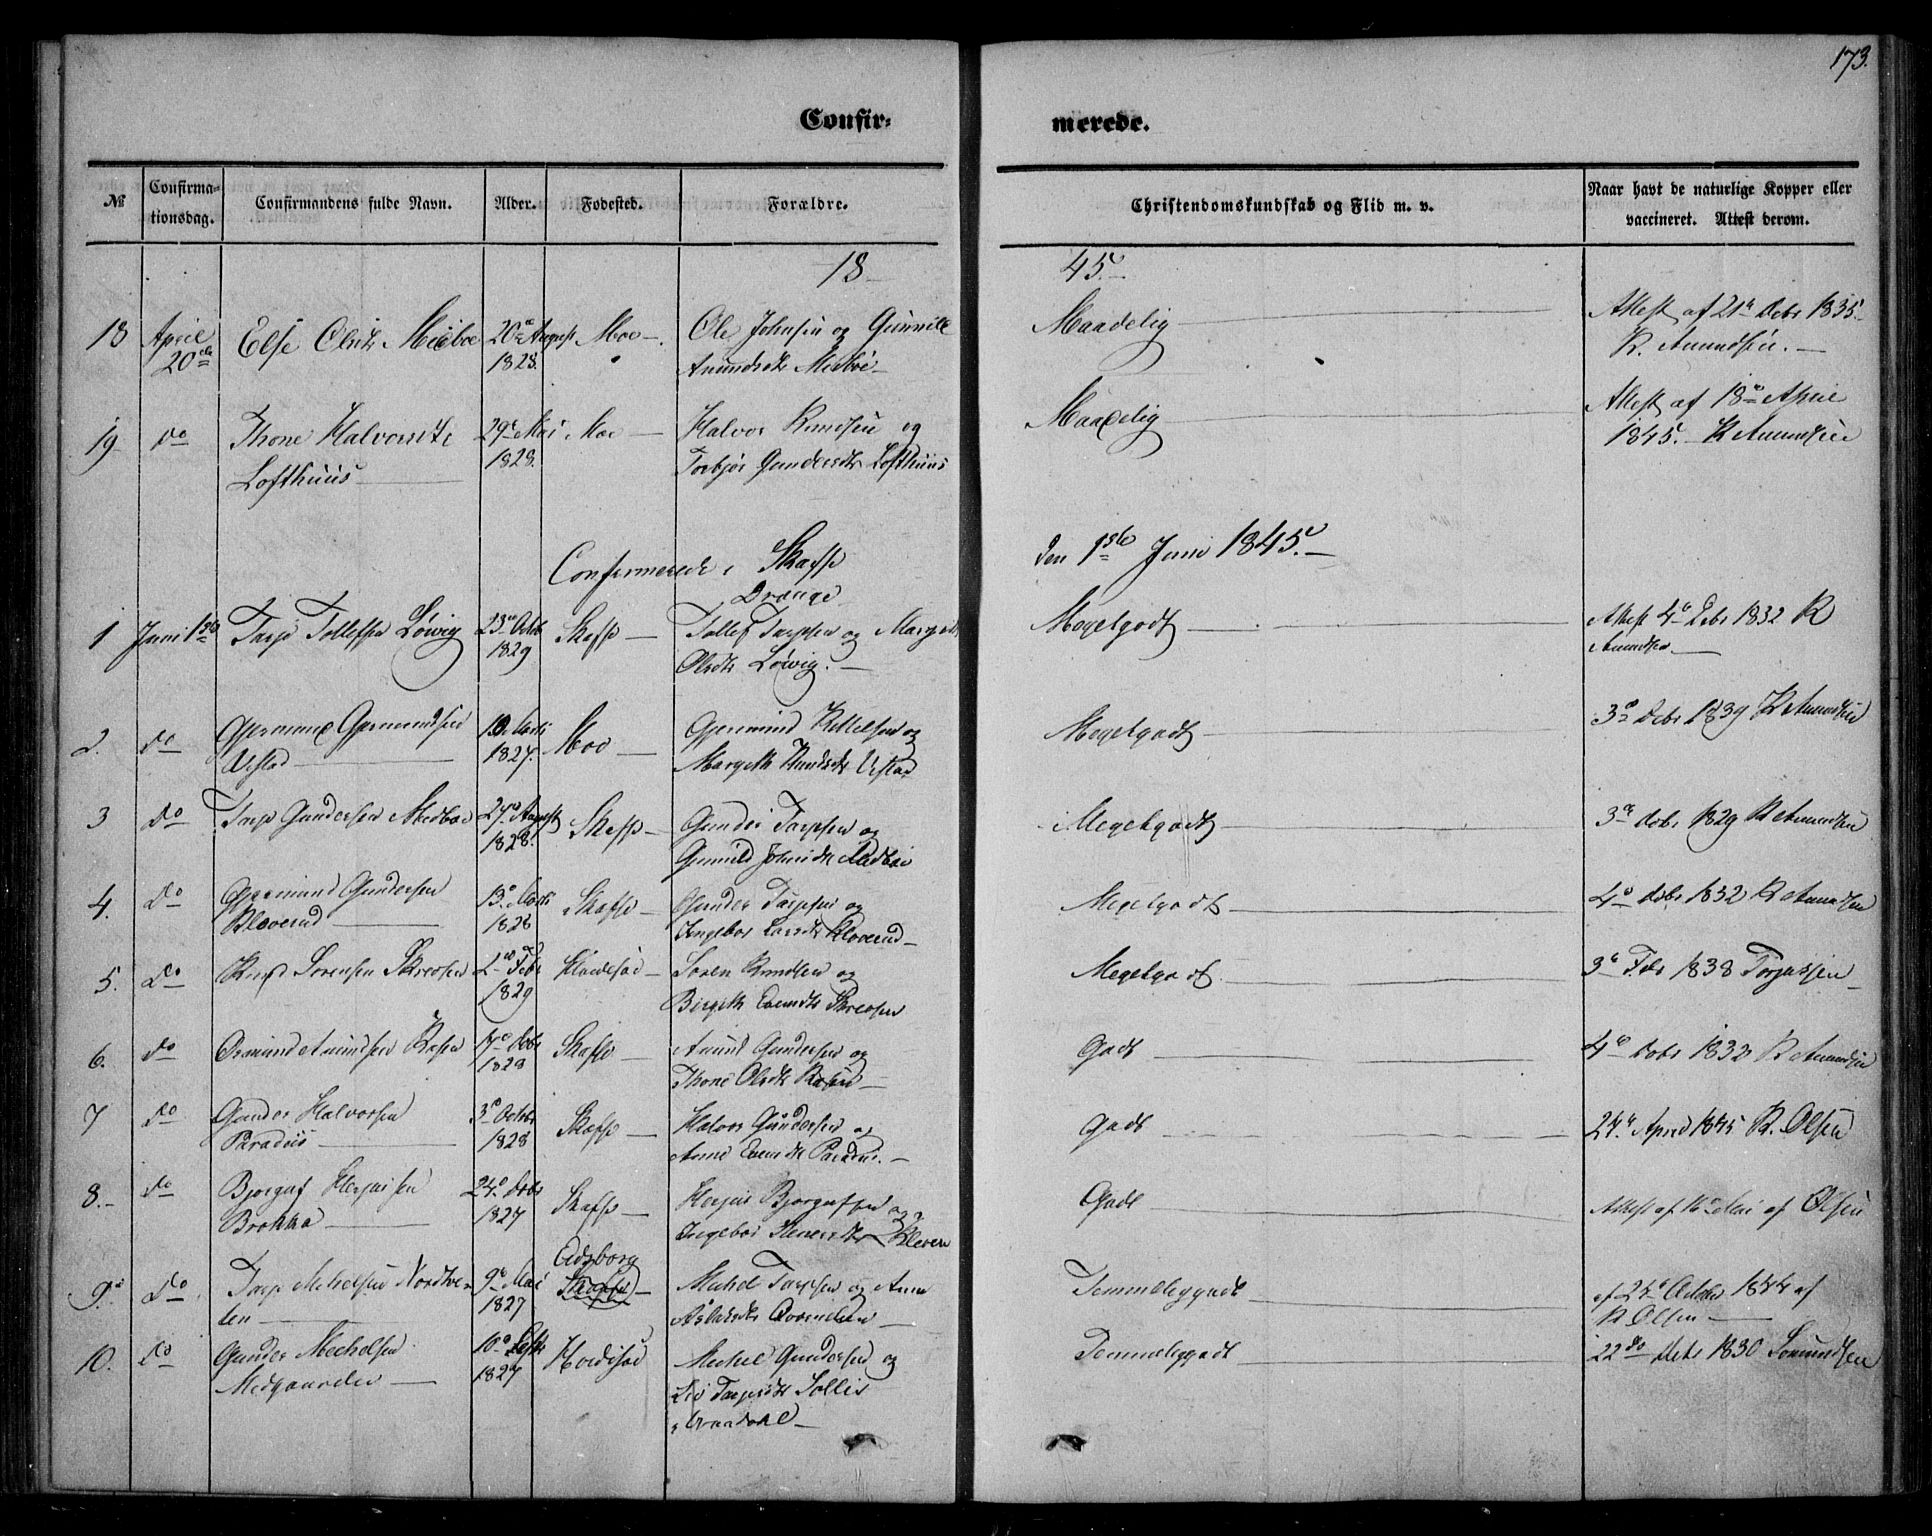 173.
Confir-
merede.
№ Confirma-tionsdag. Confirmandens fulde Navn. Alder. Fødested. Forældre. Christendomskundskab og Flid m. v. Naar havt de naturlige Kopper eller vaccineret. Attest derom.
18 45.
18 April 20de Else Olsdtr Midbøe 20de August 1828. Moe Ole Johnsen og Gunnild Amundsdtr Midbøe Maadelig Attest af 21de Debr 1835. K. Amundsen.
19 do Thone Halvorsdtr Lofthuus 29de Mai 1828. Moe Halvor Knudsen og Torbjør Gundersdtr Lofthuus Maadelig Attest af 18de April 1845. K Amundsen
Confirmerede i Skafse den 1ste Juni 1845.
Drenge
1 Juni 1ste Tarje Tollefsen Løvig 23de Octb 1829 Skafse Tollef Tarjesen og Margith Olsdtr Løvig. Megetgodt Attest 4de Debr 1832 K Amundsen
2. do Gjermund Gjermundsen Vistad 1827. Moe Gjermund Kittelsen og Margith Knudsdtr Vistad Megetgodt 3de Debr 1839 K Amundsen
3 do Tarje Gundersen Midbøe 27de August 1828. Skafse Gunder Tarjesen og Gunnild Johnsdtr Midbøe Megetgodt 3de Debr 1829 K Amundsen
4. do Gjermund Gundersen Kleverud 13de 1828 Skafse Gunder Tarjesen og Ingebor Larsdtr Kleverud Megetgodt 4de Debr 1832 K Amundsen
5. do Knud Sørensen Skreosen 2den Febr 1829 Hvidesød Søren Knudsen og Birgith Evendtr Skreosen Megetgodt 3de Febr 1838 Torjussen
6. do Osmund Amundsen 1828 Skafse Amund Gundersen og Thone Olsdtr Godt 4de Debr 1832 K Amundsen
7 do Gunder Halvorsen Paradiis 3de Octbr 1828 Skafse Halvor Gundersen og Anne Evendtr Paradiis. Godt 24de April 1845 K. Olsen
8. do Bjørgaf Herjusen Brokka 24de Debr 1827 Skafse Herjus Bjørgufsen og Ingebor Godt Attest af Olsen
9. do Tarje Mikelsen Nordtve-ten 9de Mai 1827 Eidsborg Skafse Mikel Tarjesen og Anne Aslaksdtr Temmeliggodt af 24de Octbr 1844 af K Olsen
10. do Gunder Mechelsen Midgaarden 10de 1827 Hvidesød Mickel Gundersen og Liv Tarjesdtr Sollis i Vraadahl Temmeliggodt 22de Debr 1830 Sømundsen